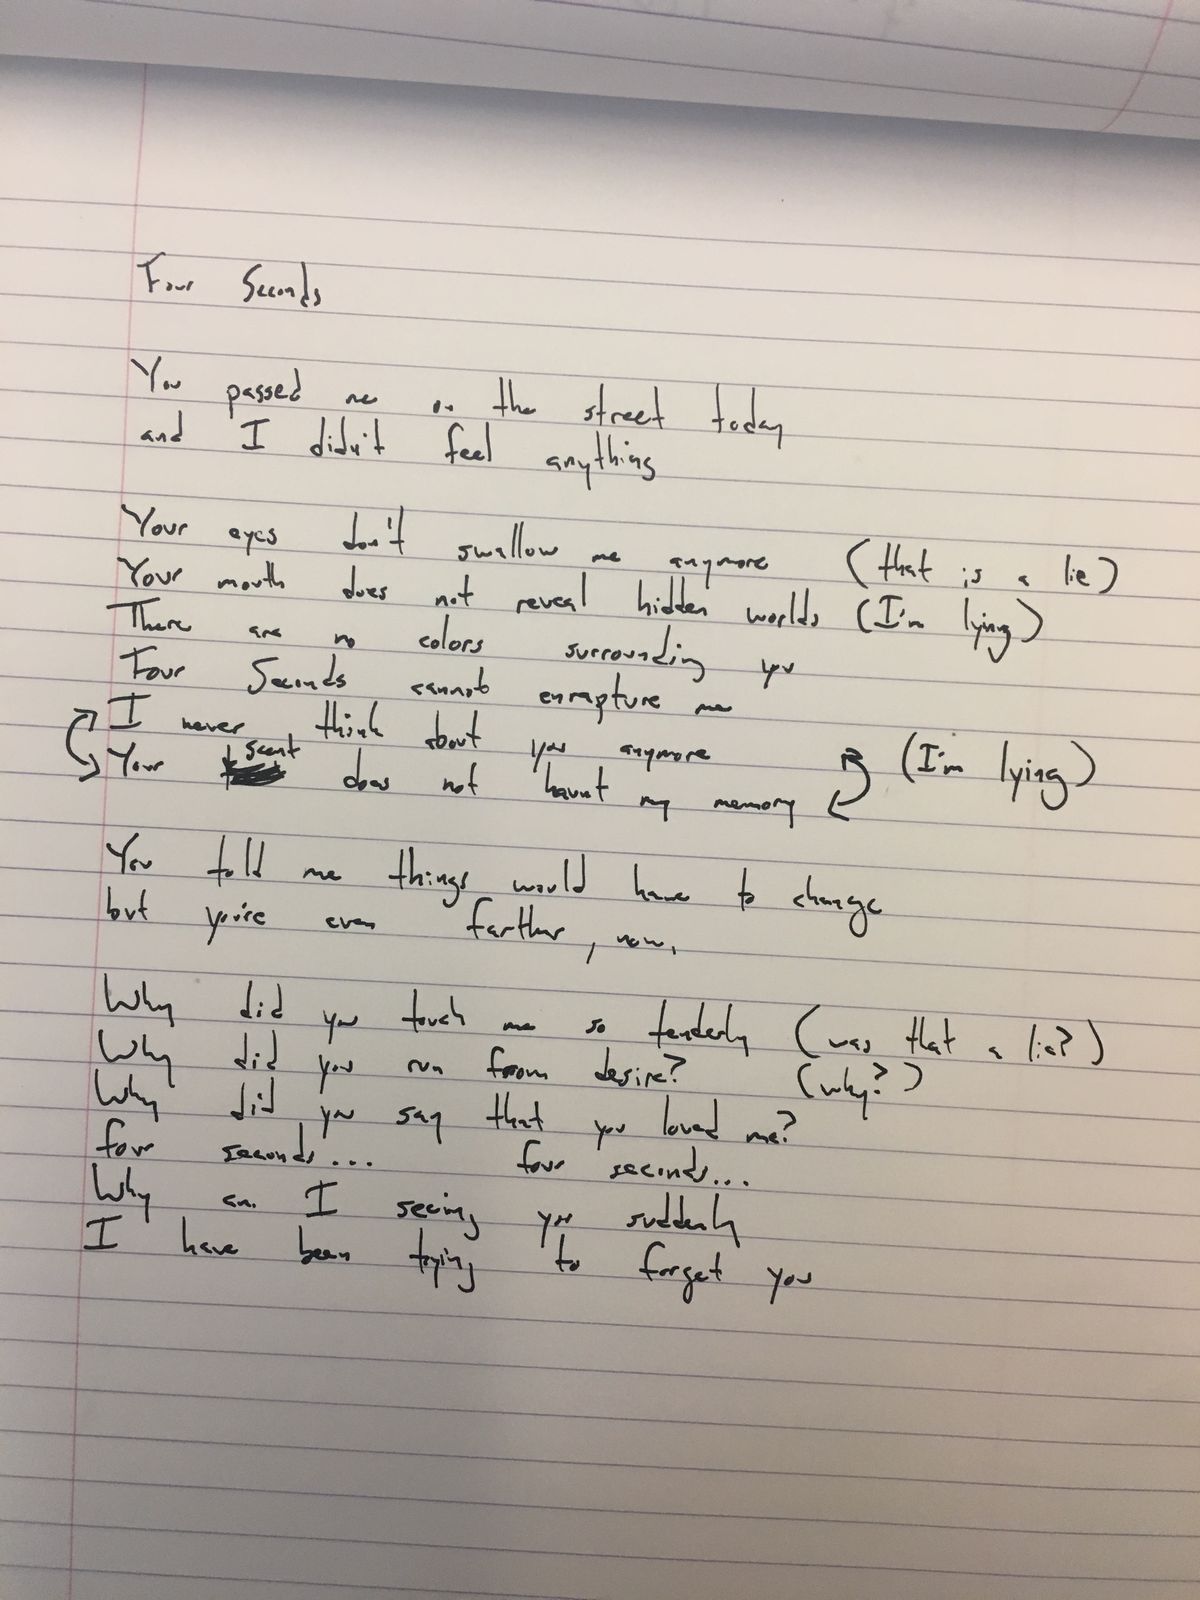 Four Seconds
You passed me on the street today
and I didn't feel anything
Your eyes don't swallow me anymore (that is a lie)
Your mouth does not reveal hidden worlds (I'm lying)
There are no colors surrounding you
Four Seconds cannot enrapture me
I never think about you anymore (I'm lying)
Your scent does not haunt my memory
You told me things would have to change
but you're even farther, now.
Why did you touch me so tenderly (was that a lie?)
Why did you run from desire? (why?)
Why did you say that you loved me?
four seconds... four seconds...
Why am I seeing you suddenly
I have been trying to forget you